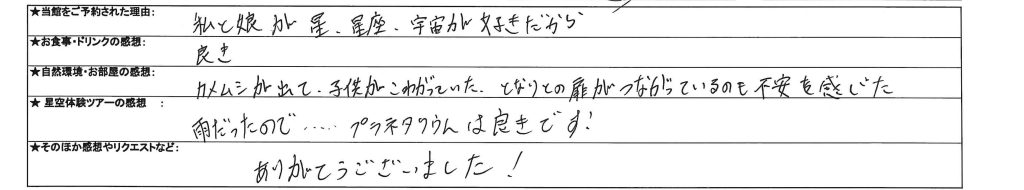 ★当館をご予約された理由: 私と娘が星、星座、宇宙が好きだから
★お食事・ドリンクの感想: 良き
★自然環境・お部屋の感想: カメムシが出て、子供がこわがっていた。となりとの扉がつながっているのも不安を感じた
★ 星空体験ツアーの感想 : 雨だったので…… プラネタリウムは良きです!
★そのほか感想やリクエストなど: ありがとうございました!